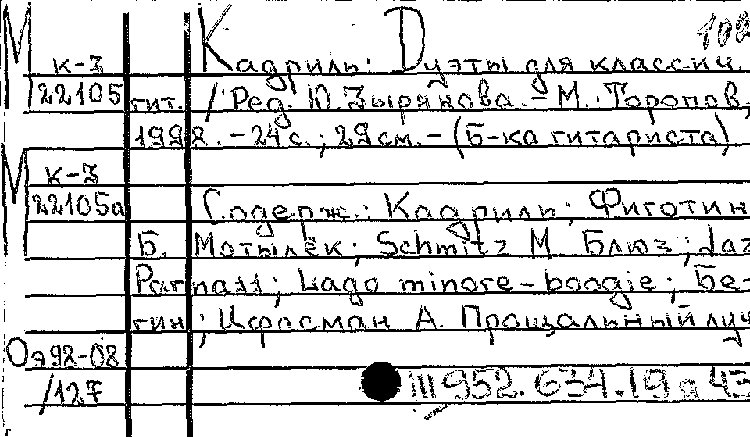 М к-3 Кадриль: Дуэты для классич.
22105 гит. / Ред. Ю. Зырянова. - М.: Торопов,
1998. - 24 с.; 29 см. - (Б-ка гитариста)
М к-3
22105а Содерж.: Кадриль; Фиготин
Б. Мотылёк; Schmitz M. Блюз; Jaz
Parnass; Lago minore-boogie; Бе-
гин; Цфасман А. Прощальный луч
Оэ98-08
/127 III 952.634.19 я 43